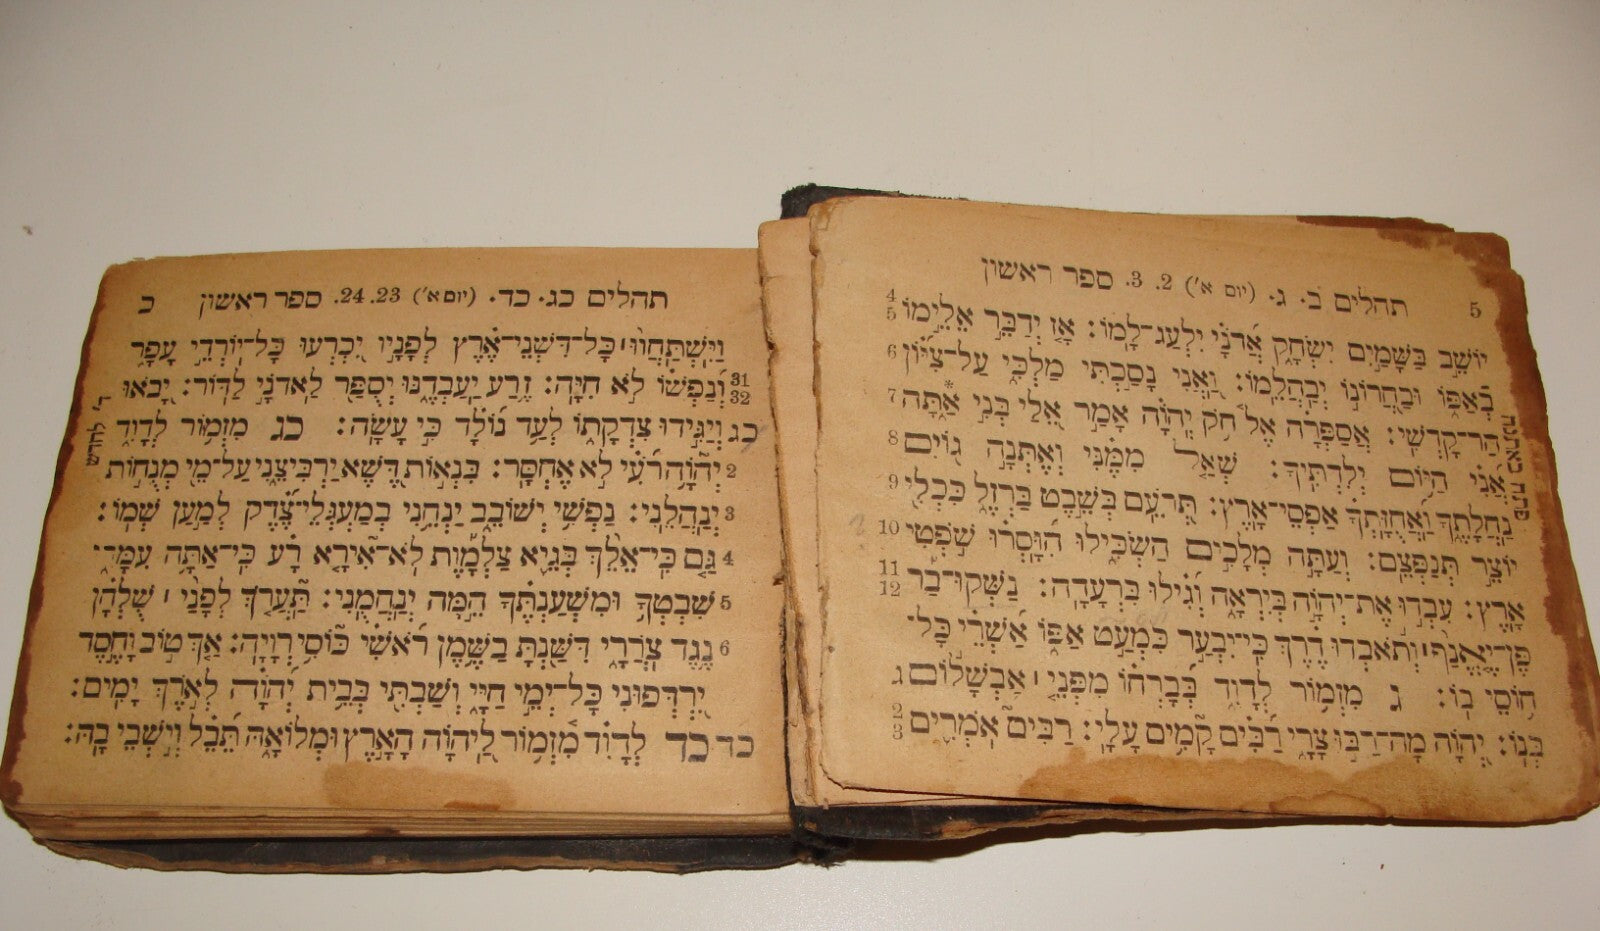 5 תהלים ב. ג. (יום א׳) 2. 3. ספר ראשון
יוֹשֵׁב בַּשָּׁמַיִם יִשְׂחָק אֲדֹנָי יִלְעַג־לָמוֹ: אָז יְדַבֵּר אֵלֵימוֹ 4 5
בְאַפּוֹ וּבַחֲרוֹנוֹ יְבַהֲלֵמוֹ: וַאֲנִי נָסַכְתִּי מַלְכִּי עַל־צִיּוֹן 6
הַר־קָדְשִׁי: אֲסַפְּרָה אֶל חֹק יְהוָה אָמַר אֵלַי בְּנִי אַתָּה* 7
אֲנִי הַיּוֹם יְלִדְתִּיךָ: שְׁאַל מִמֶּנִּי וְאֶתְּנָה גוֹיִם 8
נַחֲלָתֶךָ וַאֲחֻזָּתְךָ אַפְסֵי־אָרֶץ: תְּרֹעֵם בְּשֵׁבֶט בַּרְזֶל כִּכְלִי 9
יוֹצֵר תְּנַפְּצֵם: וְעַתָּה מְלָכִים הַשְׂכִּילוּ הִוָּסְרוּ שֹׁפְטֵי 10
אָרֶץ: עִבְדוּ אֶת־יְהוָה בְּיִרְאָה וְגִילוּ בִּרְעָדָה: נַשְּׁקוּ־בַר 11 12
פֶּן־יֶאֱנַף וְתֹאבְדוּ דֶרֶךְ כִּי־יִבְעַר כִּמְעַט אַפּוֹ אַשְׁרֵי כָּל־
חוֹסֵי בוֹ: ג מִזְמוֹר לְדָוִד בְּבָרְחוֹ מִפְּנֵי אַבְשָׁלוֹם ג
בְּנוֹ: יְהוָה מָה־רַבּוּ צָרָי רַבִּים קָמִים עָלָי: רַבִּים אֹמְרִים 2 3
תהלים כג. כד. (יום א׳) 23. 24. ספר ראשון כ
וַיִּשְׁתַּחֲווּ כָּל־דִּשְׁנֵי־אֶרֶץ לְפָנָיו יִכְרְעוּ כָּל־יוֹרְדֵי עָפָר
31 32 וְנַפְשׁוֹ לֹא חִיָּה: זֶרַע יַעַבְדֶנּוּ יְסֻפַּר לַאדֹנָי לַדּוֹר: יָבֹאוּ
כג וְיַגִּידוּ צִדְקָתוֹ לְעַם נוֹלָד כִּי עָשָׂה: כג מִזְמוֹר לְדָוִד
2 יְהוָה רֹעִי לֹא אֶחְסָר: בִּנְאוֹת דֶּשֶׁא יַרְבִּיצֵנִי עַל־מֵי מְנֻחוֹת
3 יְנַהֲלֵנִי: נַפְשִׁי יְשׁוֹבֵב יַנְחֵנִי בְמַעְגְּלֵי־צֶדֶק לְמַעַן שְׁמוֹ:
4 גַּם כִּי־אֵלֵךְ בְּגֵיא צַלְמָוֶת לֹא־אִירָא רָע כִּי־אַתָּה עִמָּדִי
5 שִׁבְטְךָ וּמִשְׁעַנְתֶּךָ הֵמָּה יְנַחֲמֻנִי: תַּעֲרֹךְ לְפָנַי שֻׁלְחָן
6 נֶגֶד צֹרְרָי דִּשַּׁנְתָּ בַשֶּׁמֶן רֹאשִׁי כּוֹסִי רְוָיָה: אַךְ טוֹב וָחֶסֶד
יִרְדְּפוּנִי כָּל־יְמֵי חַיָּי וְשַׁבְתִּי בְּבֵית יְהוָה לְאֹרֶךְ יָמִים:
כד כד לְדָוִד מִזְמוֹר לַיהוָה הָאָרֶץ וּמְלוֹאָהּ תֵּבֵל וְיֹשְׁבֵי בָהּ:
ד׳ לחדש